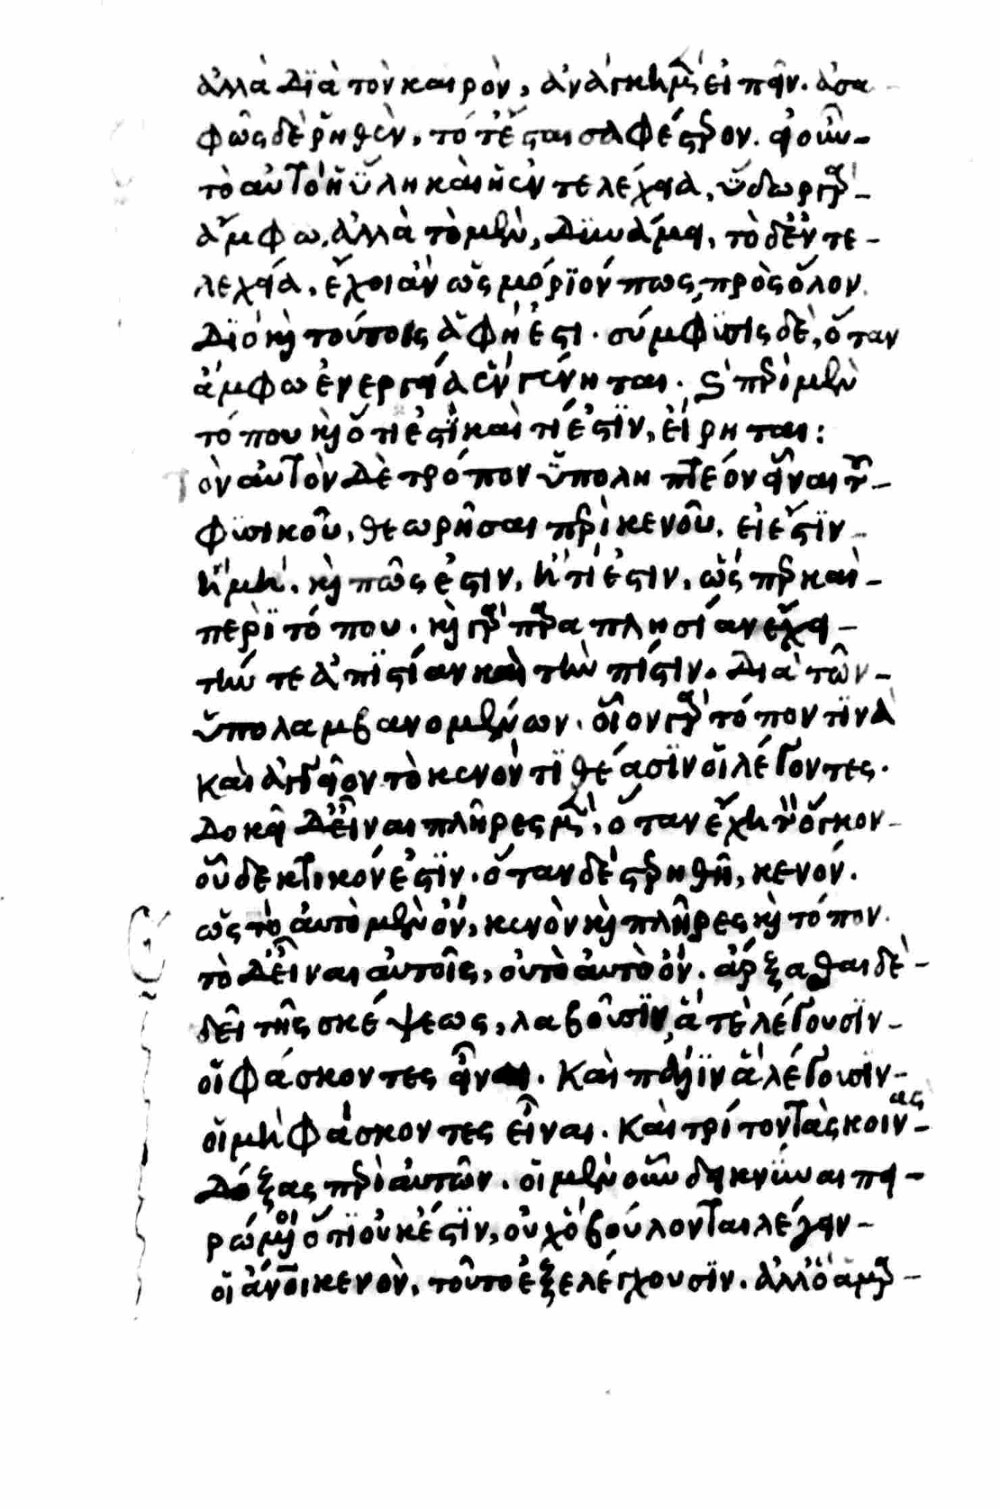 ἀλλὰ διὰ τὸν καιρὸν, ἀνάγκη μὲν εἰπεῖν. ἀσα
φῶς δὲ ῥηθὲν, τότ' ἔσται σαφέστερον. εἰ οὖν
τὸ αὐτὸ ἡ ὕλη καὶ ἡ ἐντελέχεια, ὕδωρ γὰρ
ἄμφω, ἀλλὰ τὸ μὲν, δυνάμει, τὸ δ' ἐντε
λεχείᾳ, ἔχοι ἂν ὡς μόριόν πως πρὸς ὅλον.
διὸ καὶ τούτοις ἁφή ἐστι. σύμφυσις δὲ, ὅταν
ἄμφω ἐνεργείᾳ ἓν γένηται. καὶ περὶ μὲν
τόπου καὶ ὅτι ἐστὶ καὶ τί ἐστιν, εἴρηται:
τὸν αὐτὸν δὲ τρόπον ὑποληπτέον εἶναι τοῦ
φυσικοῦ, θεωρῆσαι περὶ κενοῦ, εἰ ἔστιν
ἢ μὴ, καὶ πῶς ἔστιν, ἢ τί ἐστιν, ὥσπερ καὶ
περὶ τόπου. καὶ γὰρ παραπλησίαν ἔχει
τήν τε ἀπιστίαν καὶ τὴν πίστιν, διὰ τῶν
ὑπολαμβανομένων. οἷον γὰρ τόπον τινὰ
καὶ ἀγγεῖον τὸ κενὸν τιθέασιν οἱ λέγοντες.
δοκεῖ δ' εἶναι πλῆρες μὲν, ὅταν ἔχῃ τὸν ὄγκον
οὗ δεκτικόν ἐστιν. ὅταν δὲ στερηθῇ, κενόν.
ὡς τὸ αὐτὸ μὲν ὂν, κενὸν καὶ πλῆρες καὶ τόπον.
τὸ δ' εἶναι αὐτοῖς, οὐ τὸ αὐτὸ ὄν. ἄρξασθαι δὲ
δεῖ τῆς σκέψεως, λαβοῦσιν, ἅ τε λέγουσιν
οἱ φάσκοντες εἶναι. καὶ πάλιν ἃ λέγουσιν
οἱ μὴ φάσκοντες εἶναι. καὶ τρίτον τὰς κοινὰς
δόξας περὶ αὐτῶν. οἱ μὲν οὖν δεικνύναι πει
ρώμενοι ὅτι οὐκ ἔστιν, οὐχ ὃ βούλονται λέγειν
οἱ ἄνοι κενὸν, τοῦτο ἐξελέγχουσιν. ἀλλ' ὃ ἁμαρ